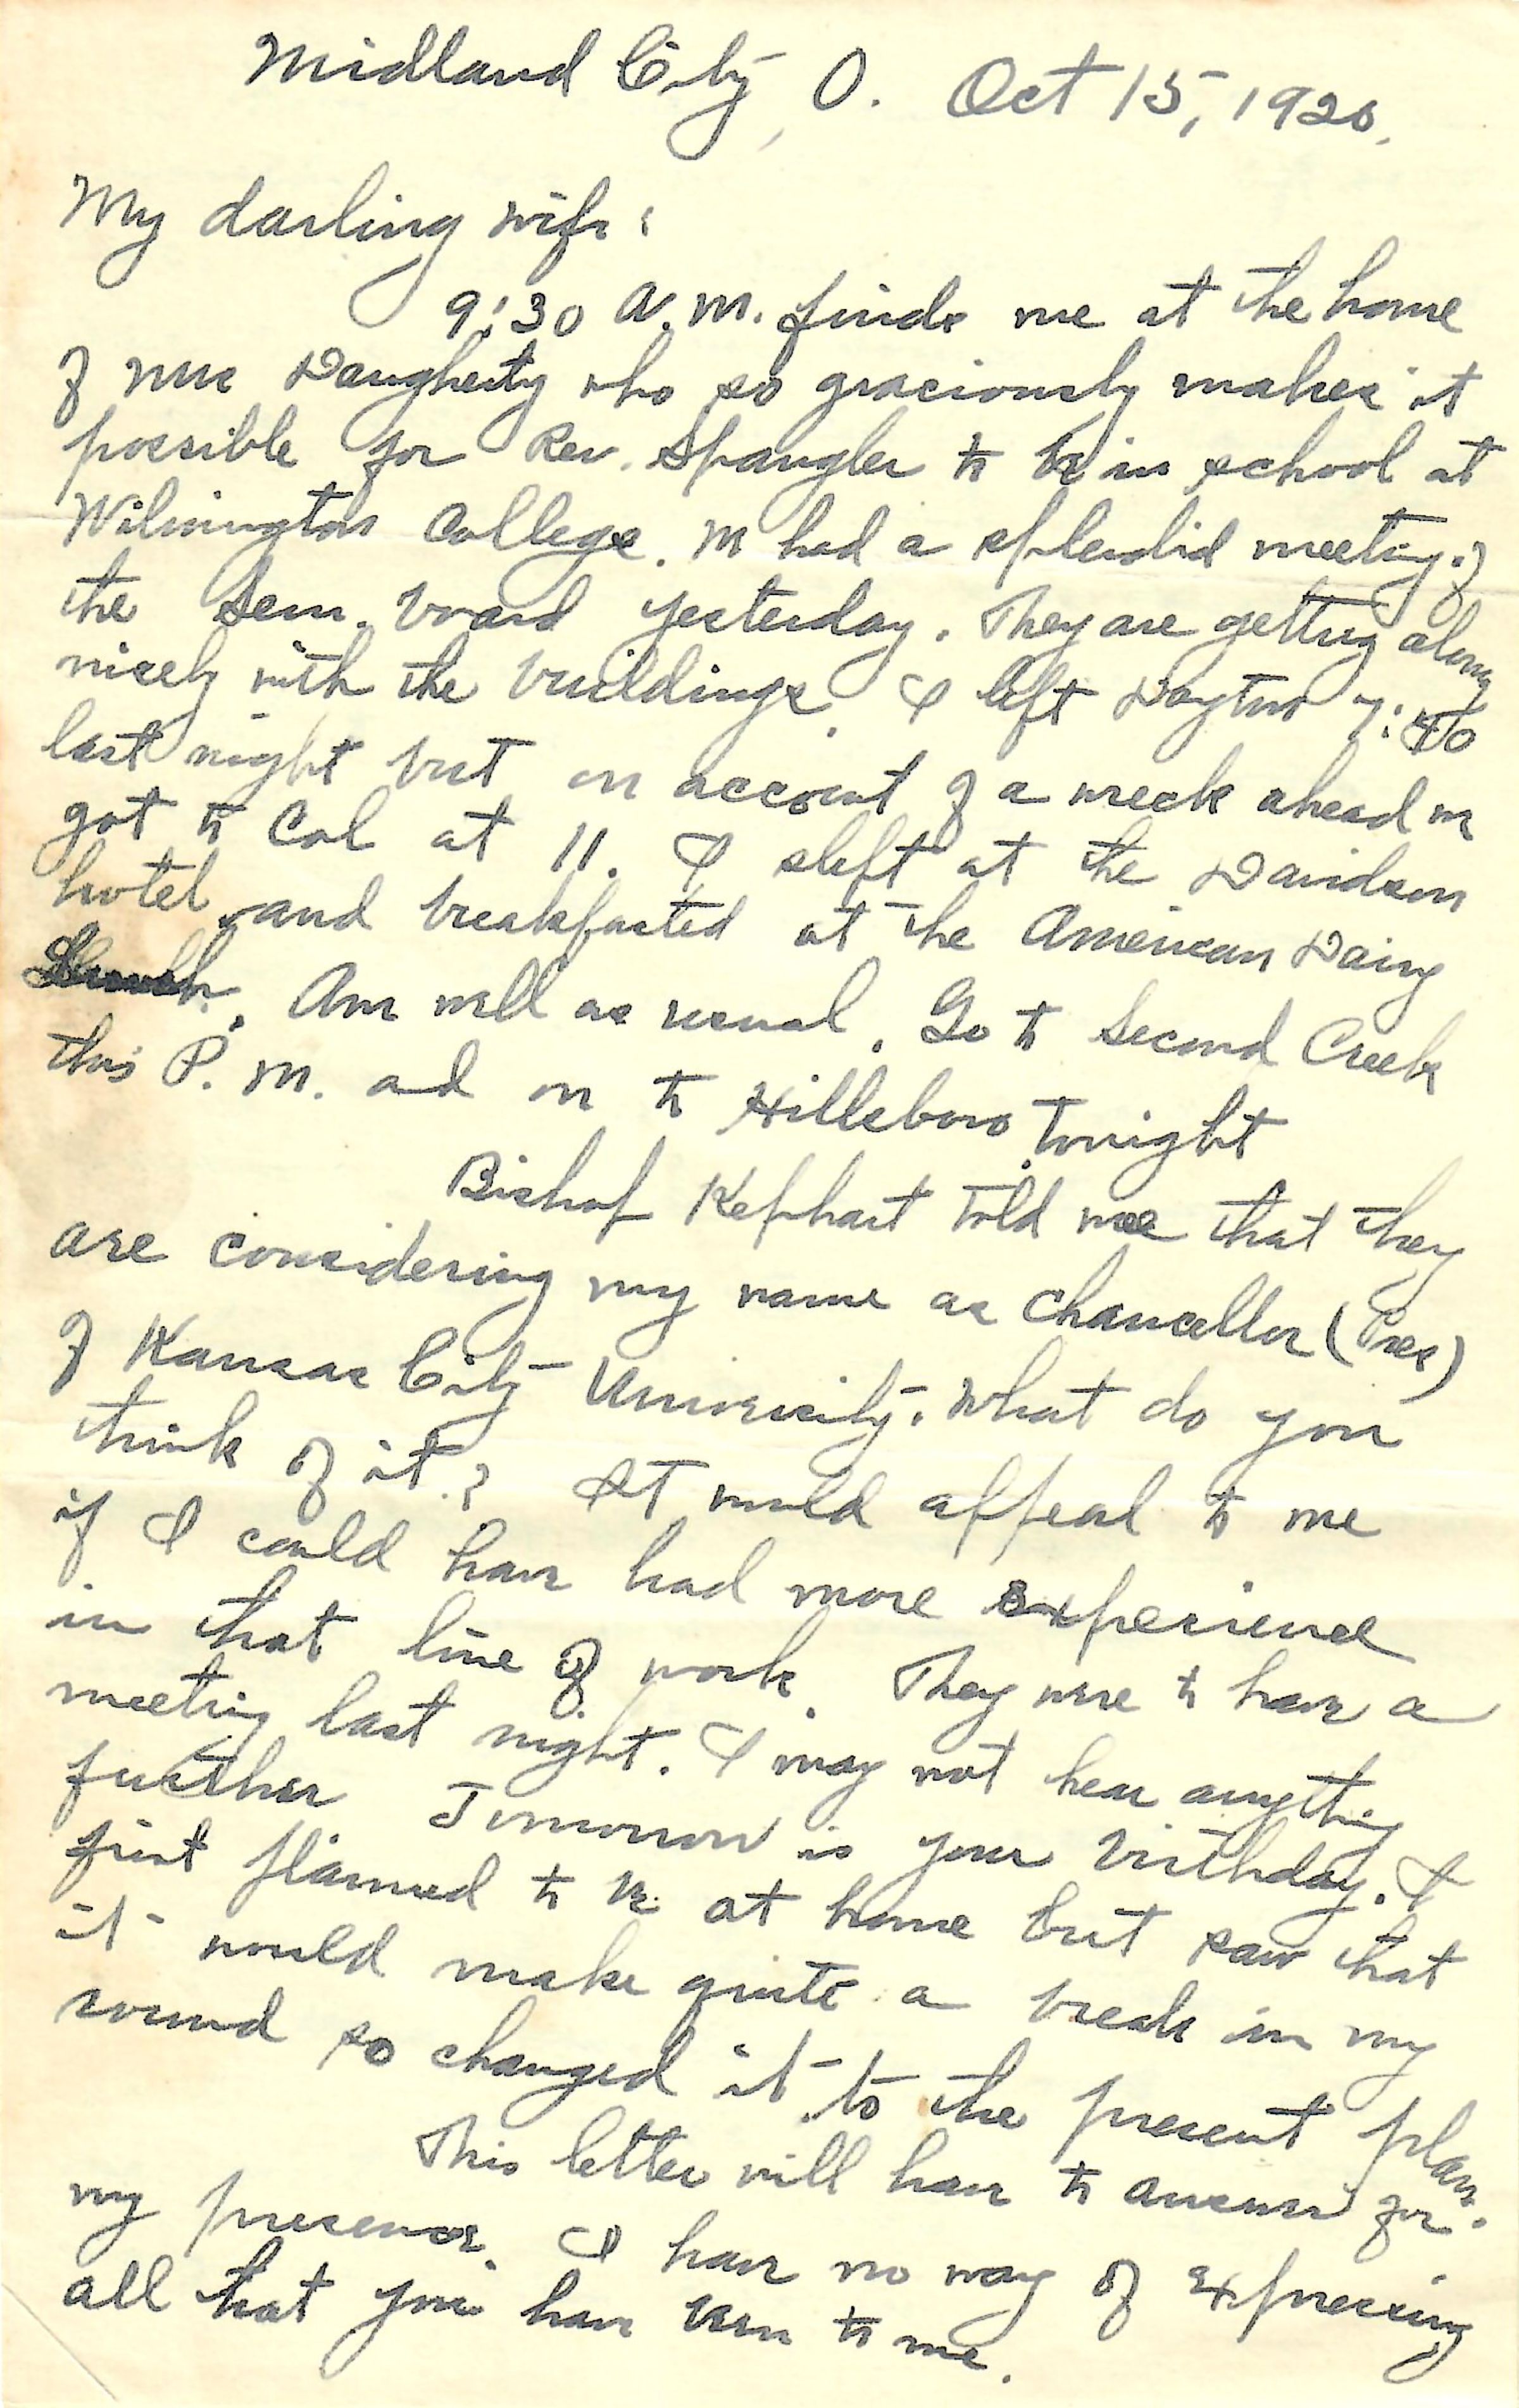 Midland City, O. Oct 15, 1920.
My darling wife:
9:30 A.M. finds me at the home
of Mrs Daugherty who so graciously makes it
possible for Rev. Spangler to be in school at
Wilmington College. We had a splendid meeting of
the Sem. board yesterday. They are getting along
nicely with the buildings. I left Dayton 7:40
last night but on account of a wreck ahead we
got to Col at 11. I slept at the Davidson
hotel and breakfasted at the American Dairy
Lunch. Am well as usual. Go to Second Creek
this P.M. and on to Hillsboro tonight.
Bishop Kephart told me that they
are considering my name as Chancellor (Pres)
of Kansas City University. What do you
think of it? It would appeal to me
if I could have had more experience
in that line of work. They were to have a
meeting last night. I may not hear anything
further Tomorrow is your birthday. I
first planned to be at home but saw that
it would make quite a break in my
round so changed it to the present plan.
This letter will have to answer for
my presence. I have no way of expressing
all that you have been to me.